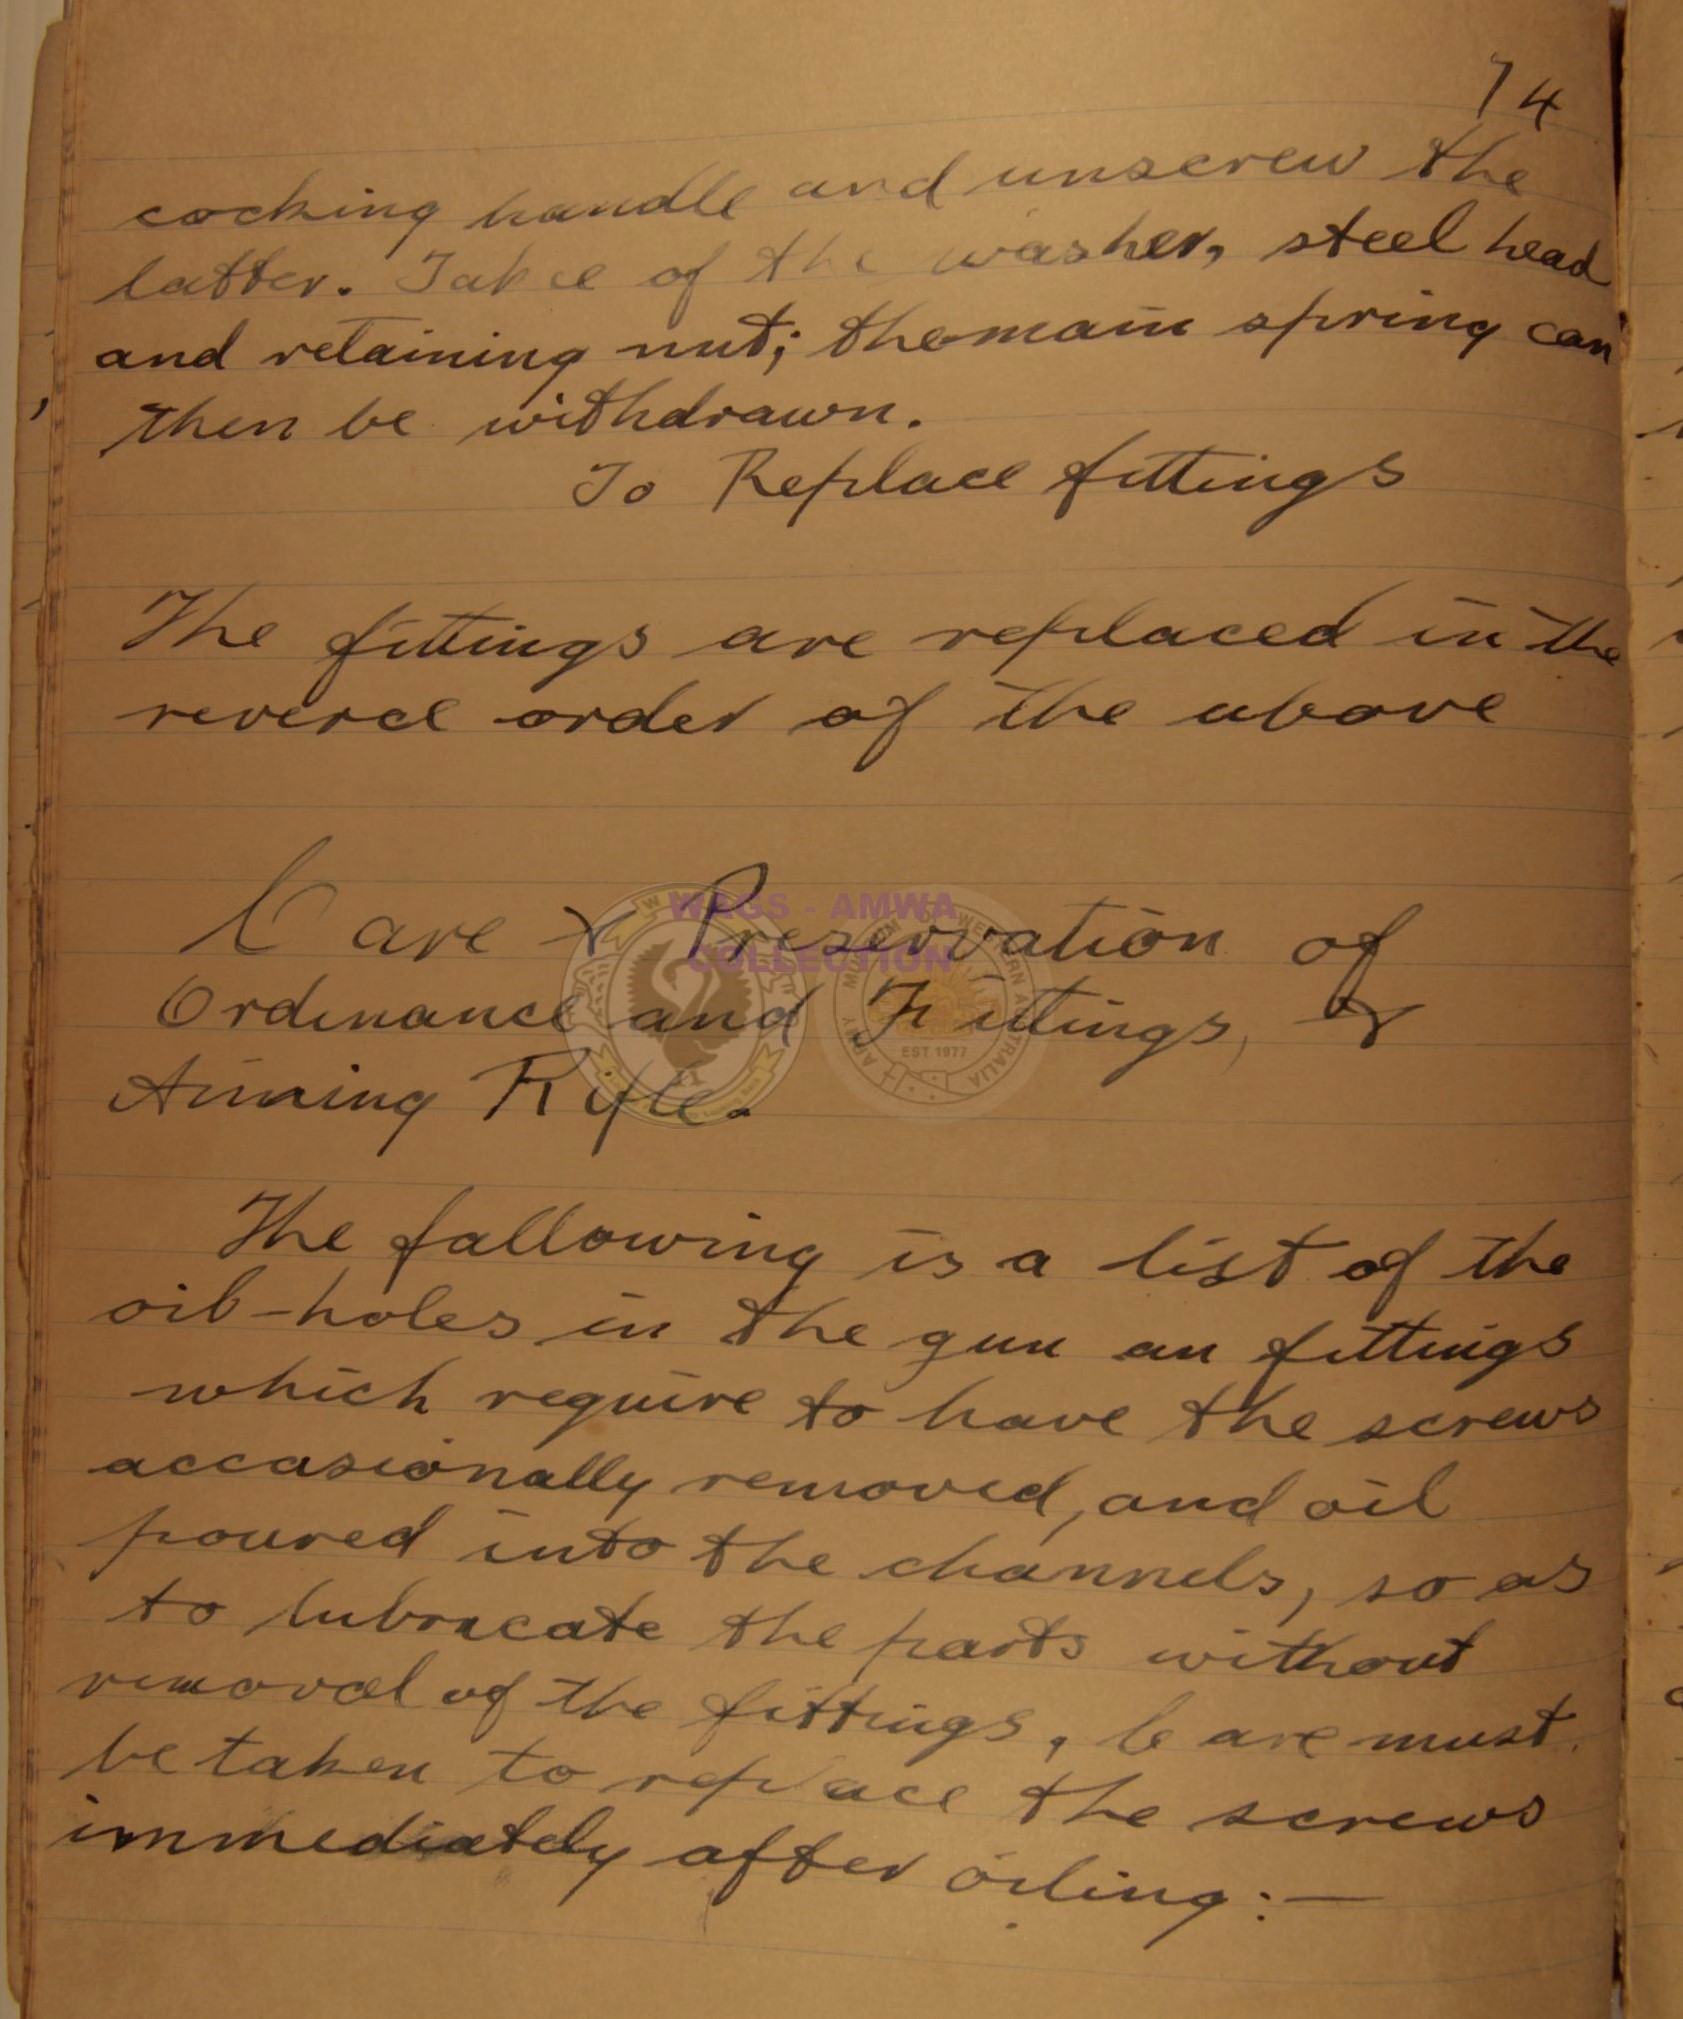 74
cocking handle and unscrew the
latter. Take of the washer, steel head
and retaining nut; the main spring can
then be withdrawn.
To Replace fittings
The fittings are replaced in the
reverce order of the above
Care & Preservation of
Ordinance and Fittings, &
Aiming Rifle.
The following is a list of the
oil-holes in the gun an fittings
which require to have the screws
occasionally removed, and oil
poured into the channels, so as
to lubricate the parts without
removal of the fittings, Care must
be taken to replace the screws
immediately after oiling:—
WAGS - AMWA
COLLECTION
ARMY MUSEUM OF WESTERN AUSTRALIA
EST 1977